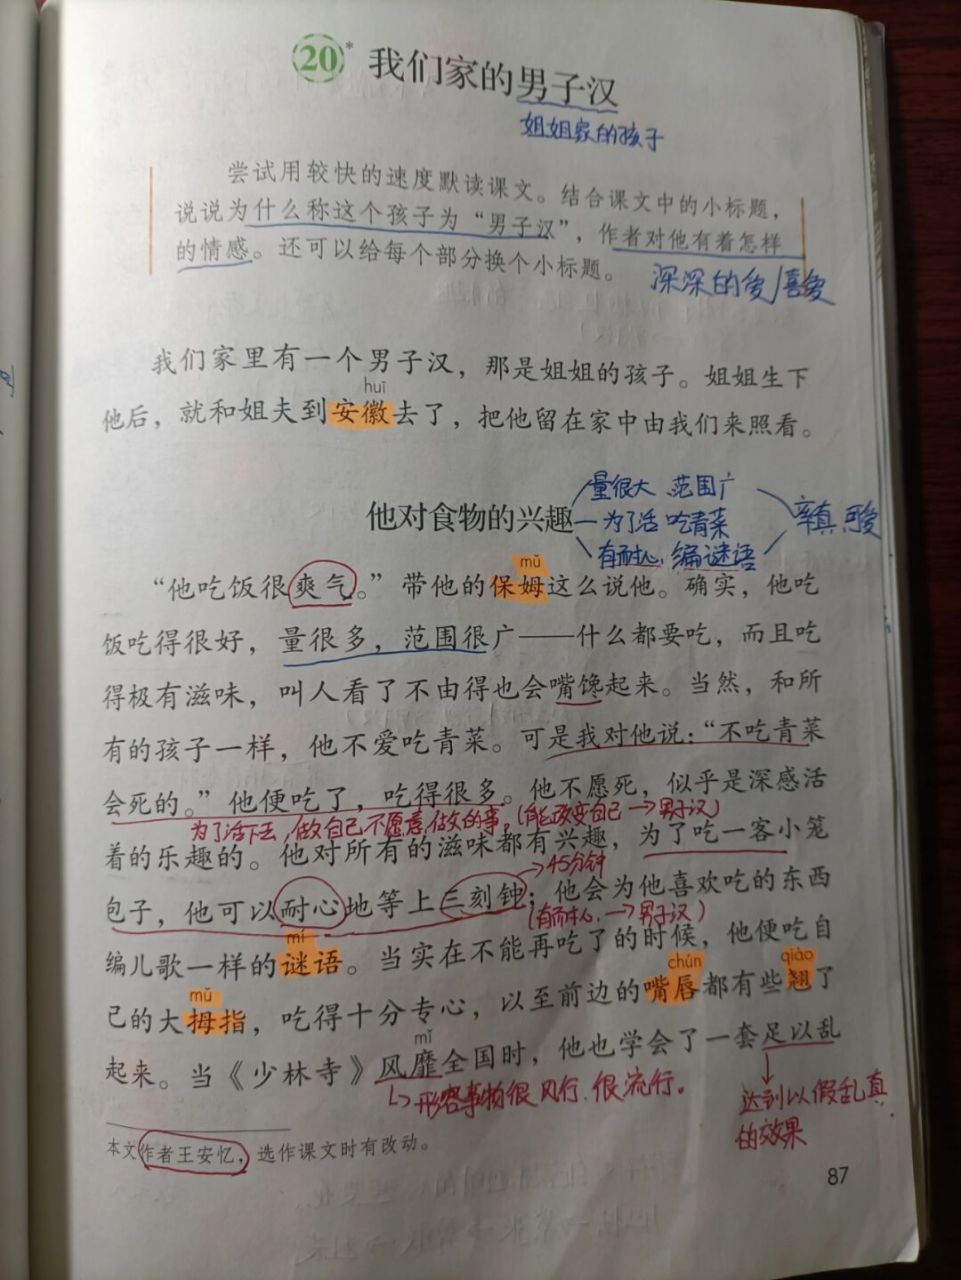 20* 我们家的男子汉
姐姐家的孩子
尝试用较快的速度默读课文。结合课文中的小标题，
说说为什么称这个孩子为“男子汉”，作者对他有着怎样
的情感。还可以给每个部分换个小标题。
深深的爱/喜爱
我们家里有一个男子汉，那是姐姐的孩子。姐姐生下
huī
他后，就和姐夫到安徽去了，把他留在家中由我们来照看。
量很大 范围广
他对食物的兴趣 为了活 吃青菜 率真 可爱
有耐心，编谜语
mǔ
“他吃饭很爽气。”带他的保姆这么说他。确实，他吃
饭吃得很好，量很多，范围很广——什么都要吃，而且吃
得极有滋味，叫人看了不由得也会嘴馋起来。当然，和所
有的孩子一样，他不爱吃青菜。可是我对他说：“不吃青菜
会死的。”他便吃了，吃得很多。他不愿死，似乎是深感活
为了活下去，做自己不愿意做的事。(能改变自己→男子汉)
着的乐趣的。他对所有的滋味都有兴趣，为了吃一客小笼
→45分钟
包子，他可以耐心地等上三刻钟；他会为他喜欢吃的东西
(有耐心，→男子汉)
mí
编儿歌一样的谜语。当实在不能再吃了的时候，他便吃自
mǔ chún qiào
己的大拇指，吃得十分专心，以至前边的嘴唇都有些翘了
mǐ
起来。当《少林寺》风靡全国时，他也学会了一套足以乱
形容事物很风行、很流行。
达到以假乱真
的效果
本文作者王安忆，选作课文时有改动。
87